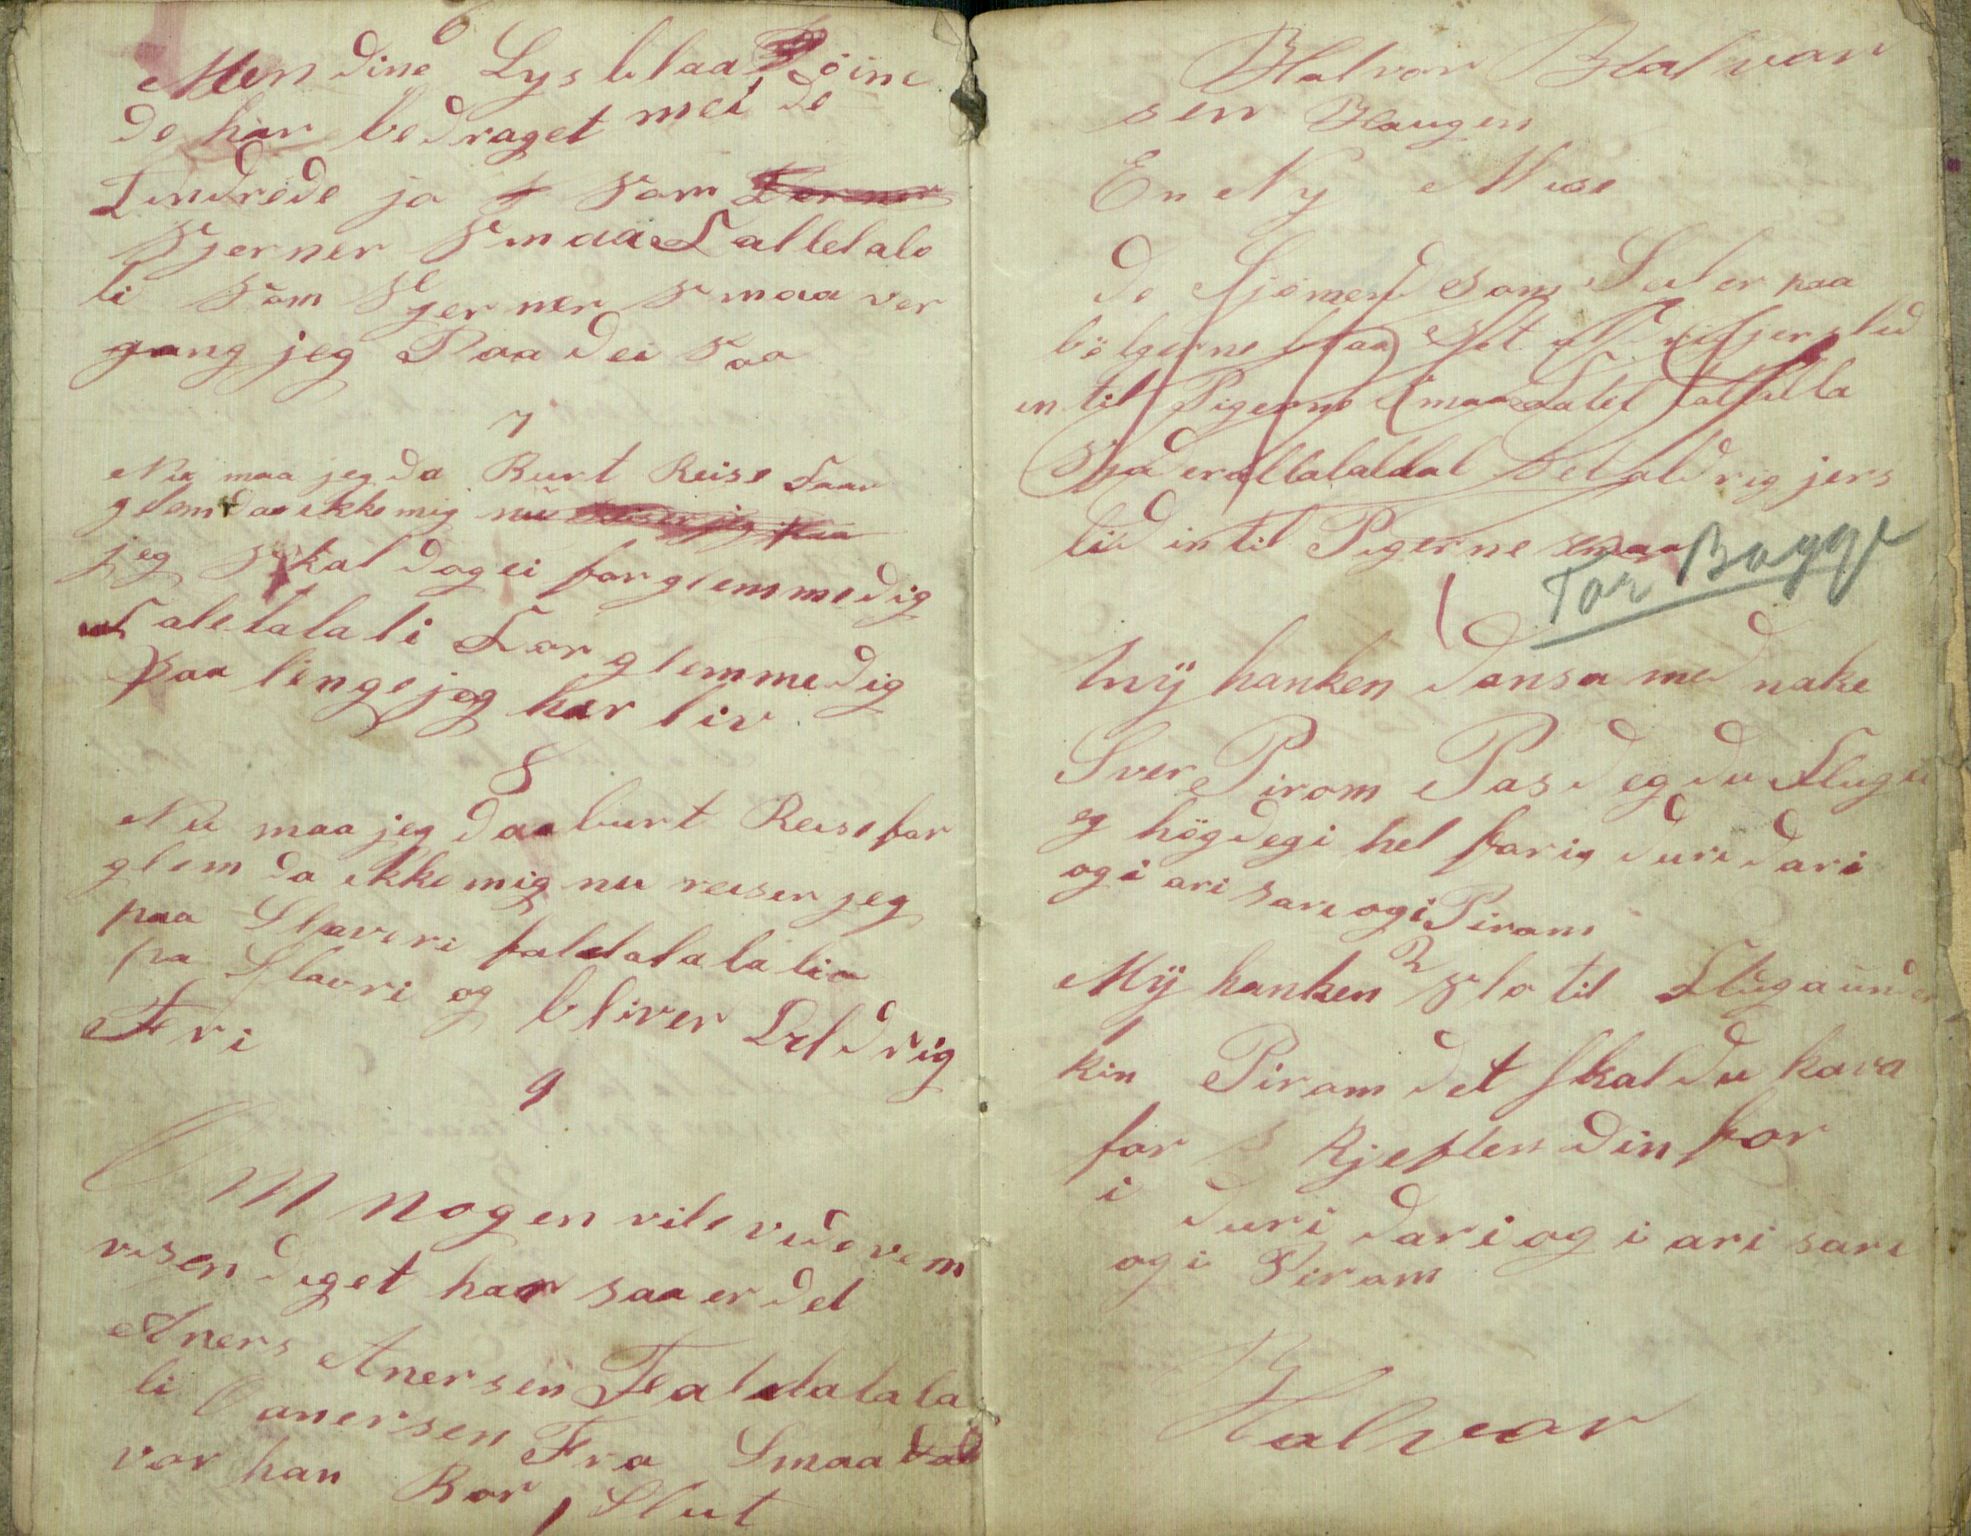 6
Men dine Lys blaa Öine
de har bedraget mei de
Tindrede ja som
Sjerner Smaa Falletale
li som Sjerner Smaa ver
gang jeg Paa dei Saa
7
Nu maa jeg da Burt Reise Faar
glem da ikke mig nu
jeg Skal dog ei forglemme dig
Faletalali Forglemme dig
Saa lenge jeg har liv
8
Nu maa jeg daa burt Reise for
glem da ikke mig nu reiser jeg
paa Slaveri faldalalalalia
pa Slavri og bliver Aldrig
Fri
9
Om nogen vile vide vem
visen diget har saa er det
Aners Anersen Faldalalala
li anersen Fra Smaadal
var han Bor, Slut
Halvor Halvor
sen Haugen
En Ny Vise
De Sjömend som Seiler paa
bölgerne blaa Set aldrig jers lid
in til Pigerne Smaa
Set aldrig jers
lid in til Pigerne smaa
Tor Bagge
1
Mÿ hanken dansa med nake
Sver Pirom Pas deg du Fluga
eg hög deg i hel for i duri dari
og i ari sari og i Pirom
2
Mÿ hanken Slo til Fluga under
kin Pirom det Skal du hava
for Kjeften din for
i duri dari og i ari sari
og i Pirom
Halvor